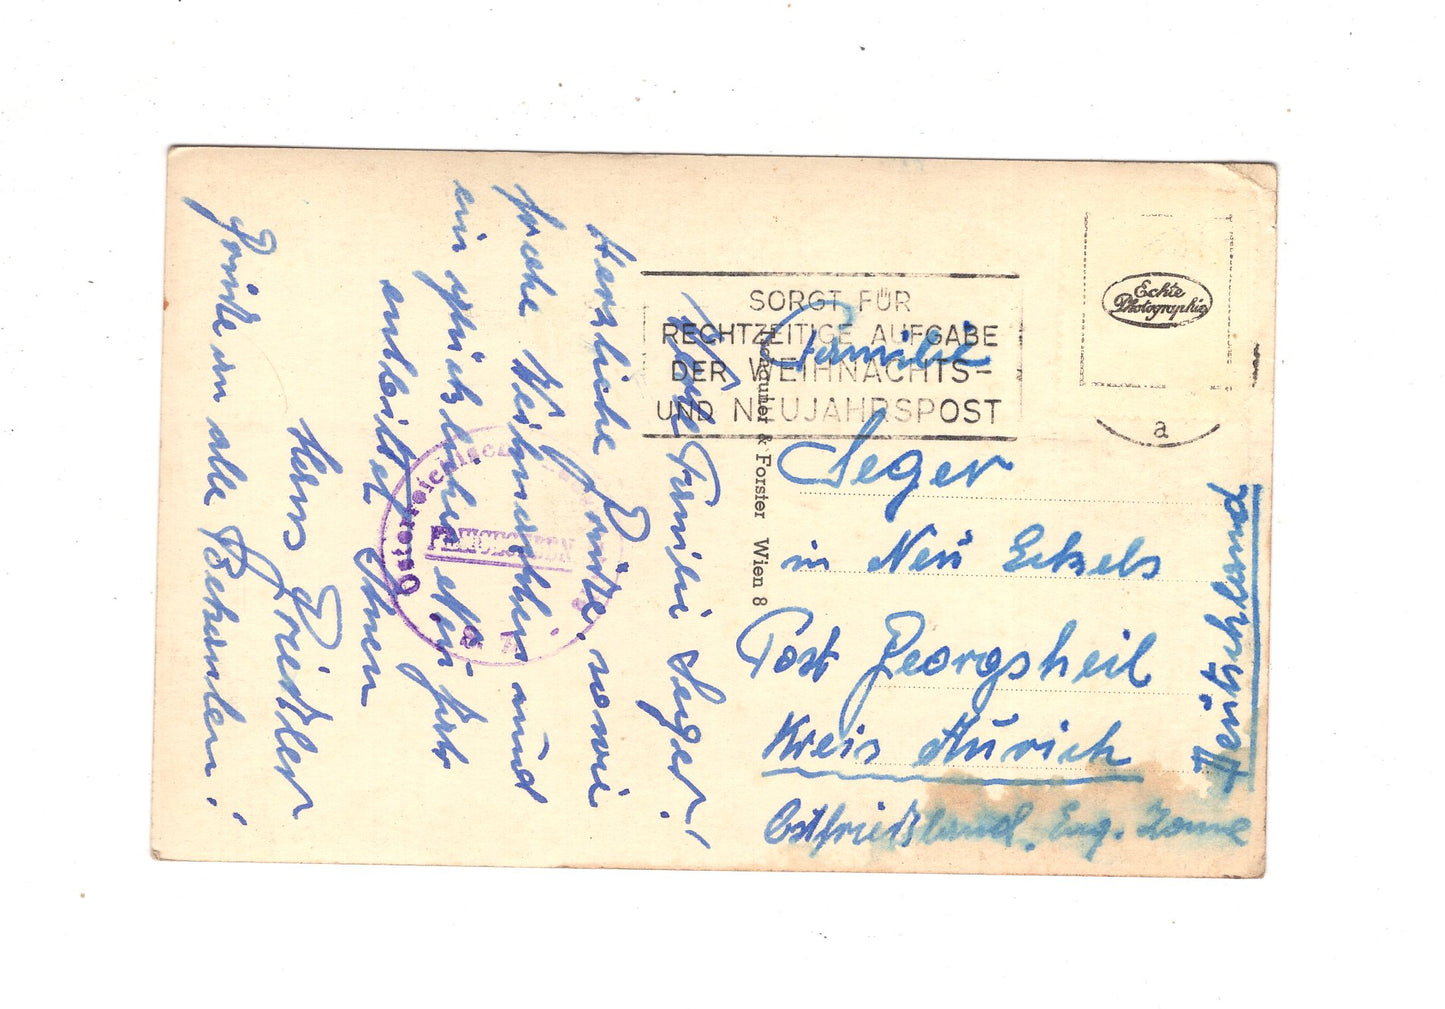 Werte Familie Seger!
Herzliche Grüße, sowie
frohe Weihnachten und
ein glückliches Neujahr
entbietet Ihnen
Hans
Grüße an alle Bekannten!
SORGT FÜR
RECHTZEITIGE AUFGABE
DER WEIHNACHTS-
UND NEUJAHRSPOST
Echte
Photographie
a
Familie
Seger
in Neu Ekels
Post Georgsheil
Kreis Aurich
Ostfriesland. Eng. Zone
Deutschland
& Forster Wien 8
Österreichische